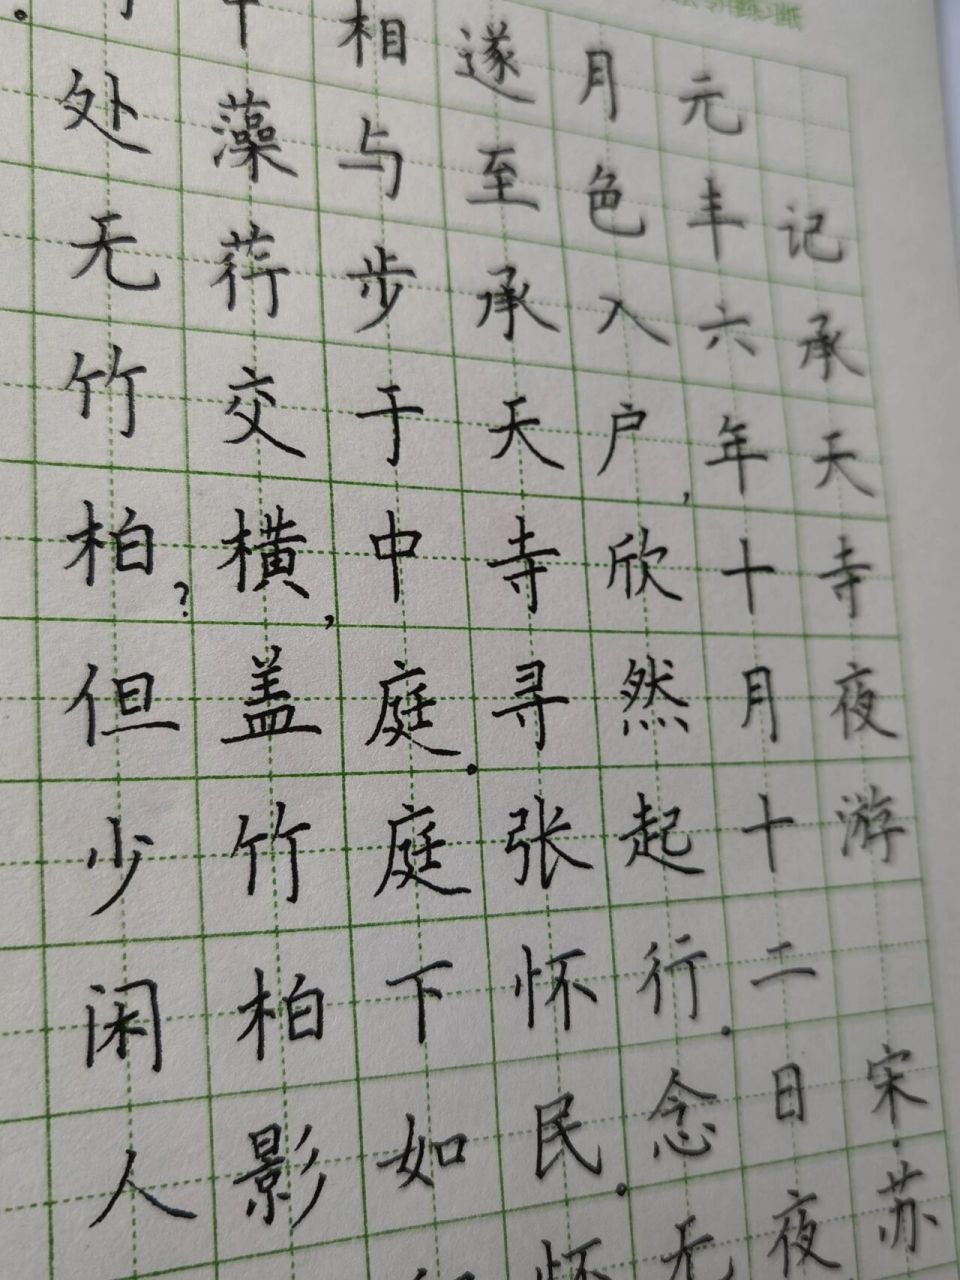 记承天寺夜游 宋·苏
元丰六年十月十二日夜
月色入户,欣然起行.念无
遂至承天寺寻张怀民.怀
相与步于中庭.庭下如
藻荇交横,盖竹柏影
处无竹柏?但少闲人